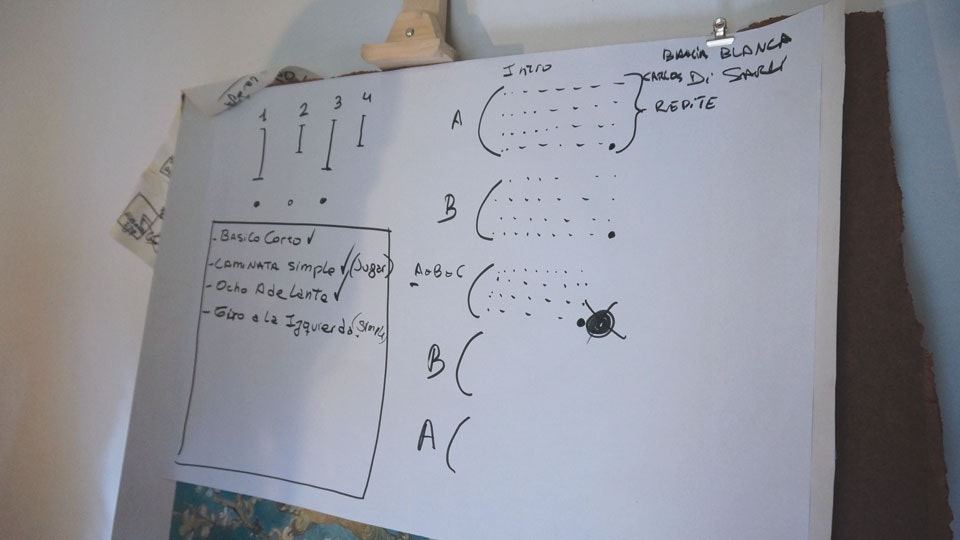 1 2 3 4
- BASICO CORTO ✓
- CAMINATA simple ✓ (Jugar)
- Ocho Adelante ✓
- Giro a la Izquierda (simple)
Intro
BAHIA BLANCA
CARLOS Di SARLI
REPITE
A
B
A o B o C
B
A